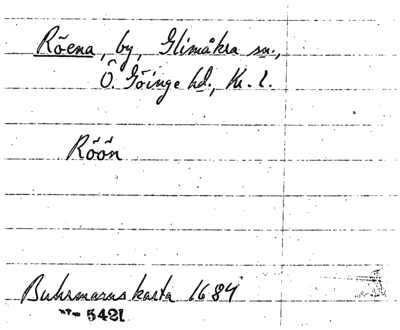 Röena, by, Glimåkra sn.,
Ö. Göinge hd., Kr. l.
Röön
Buhrmans karta 1684
5421